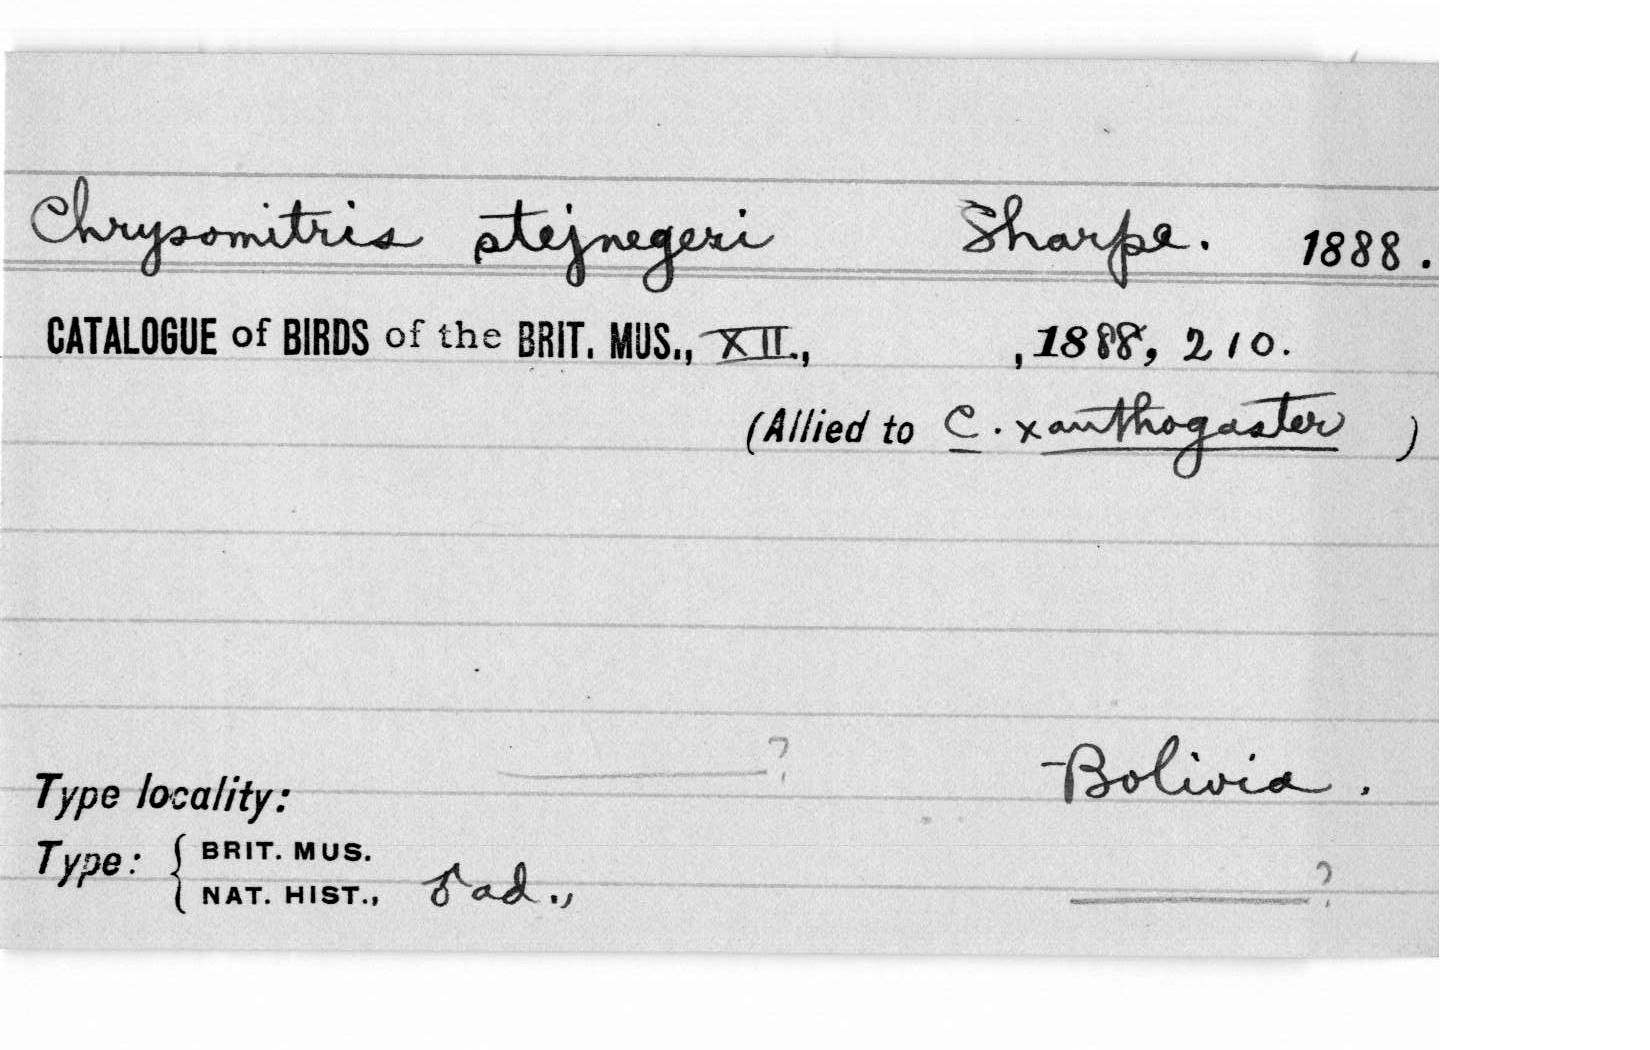 Chrysomitris stejnegeri Sharpe. 1888.
CATALOGUE of BIRDS of the BRIT. MUS., XII., , 1888, 210.
(Allied to C. xanthogaster )
Type locality: ? Bolivia.
Type: { BRIT. MUS.
NAT. HIST., ♂ ad., ?